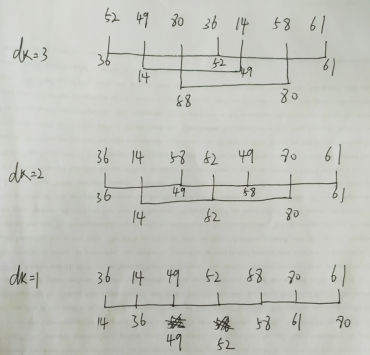 52 49 80 36 14 58 61
dk=3
36 52 61
14 49
58 80
36 14 58 52 49 80 61
dk=2
36 49 58 61
14 52 80
36 14 49 52 58 80 61
dk=1
14 36 58 61 80
49 52